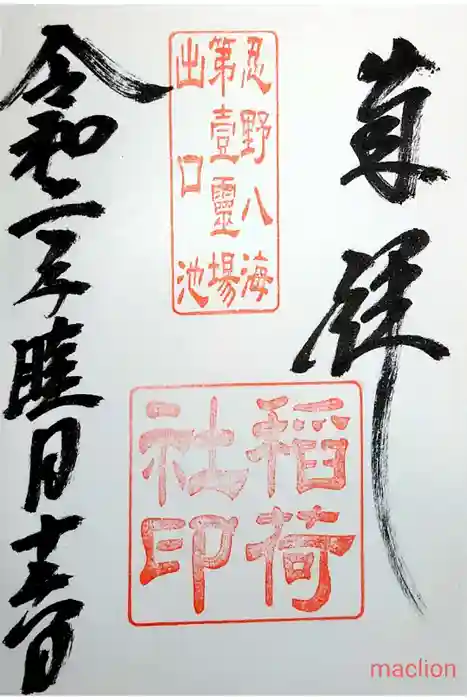 奉拝
忍野八海
第壹靈場
出口池
稲荷
社印
令和二年睦月十日
maclion